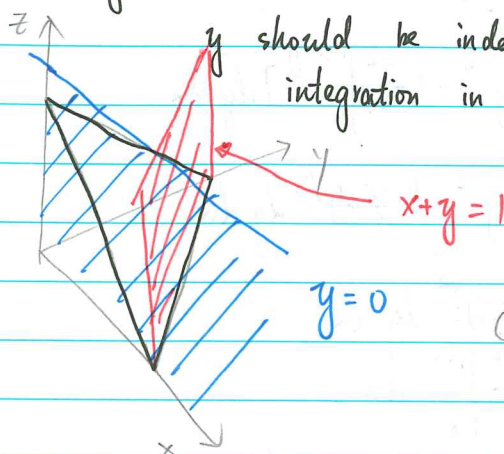 z
y should be inde
integration in
y
x+y=1
y=0
x